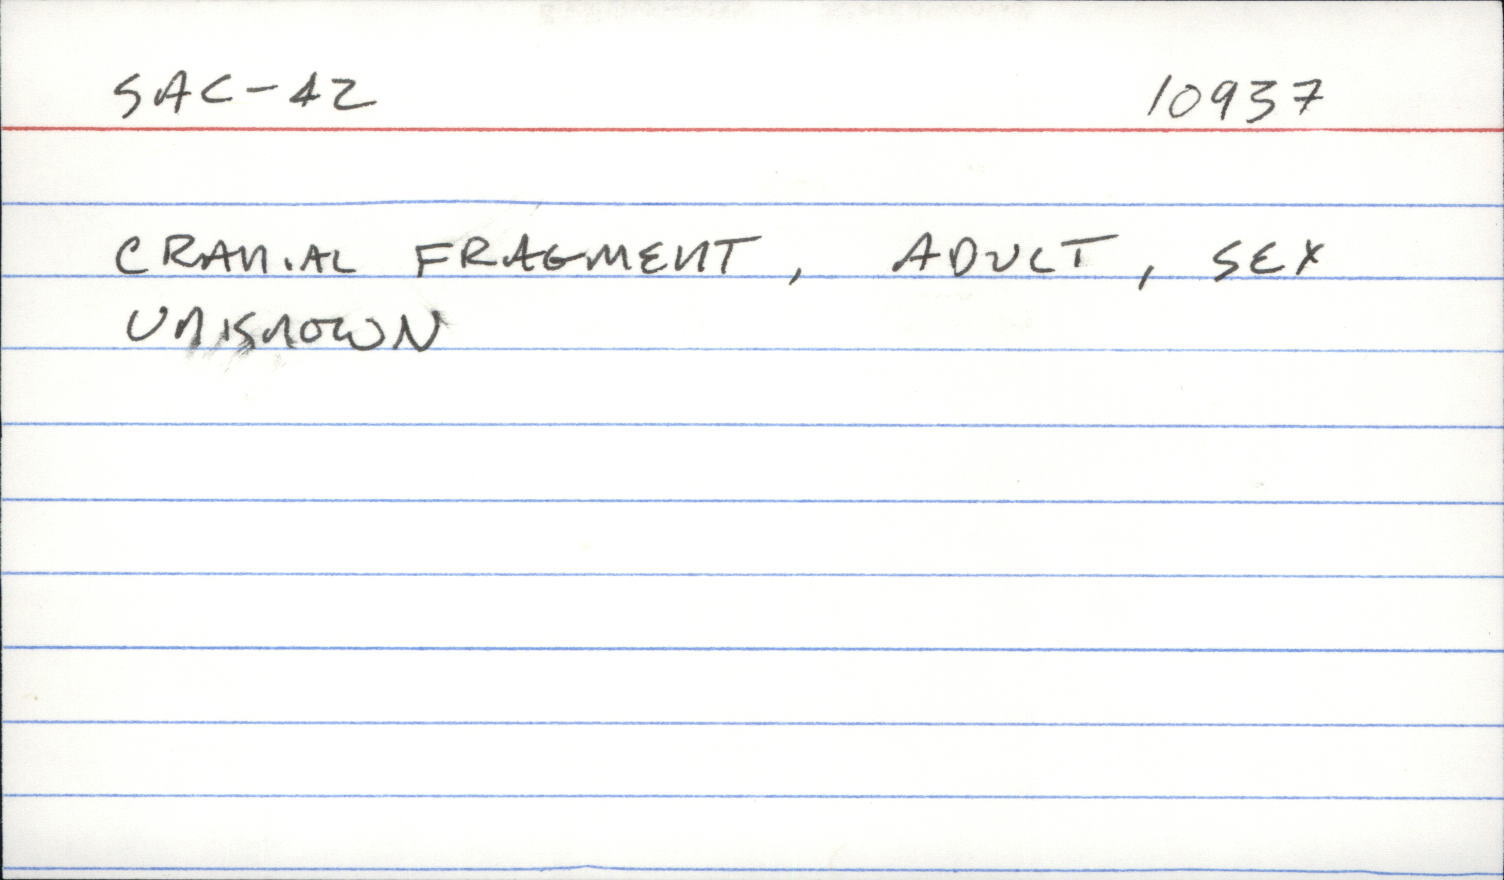 SAC-42 10937
CRANIAL FRAGMENT, ADULT, SEX
UNKNOWN